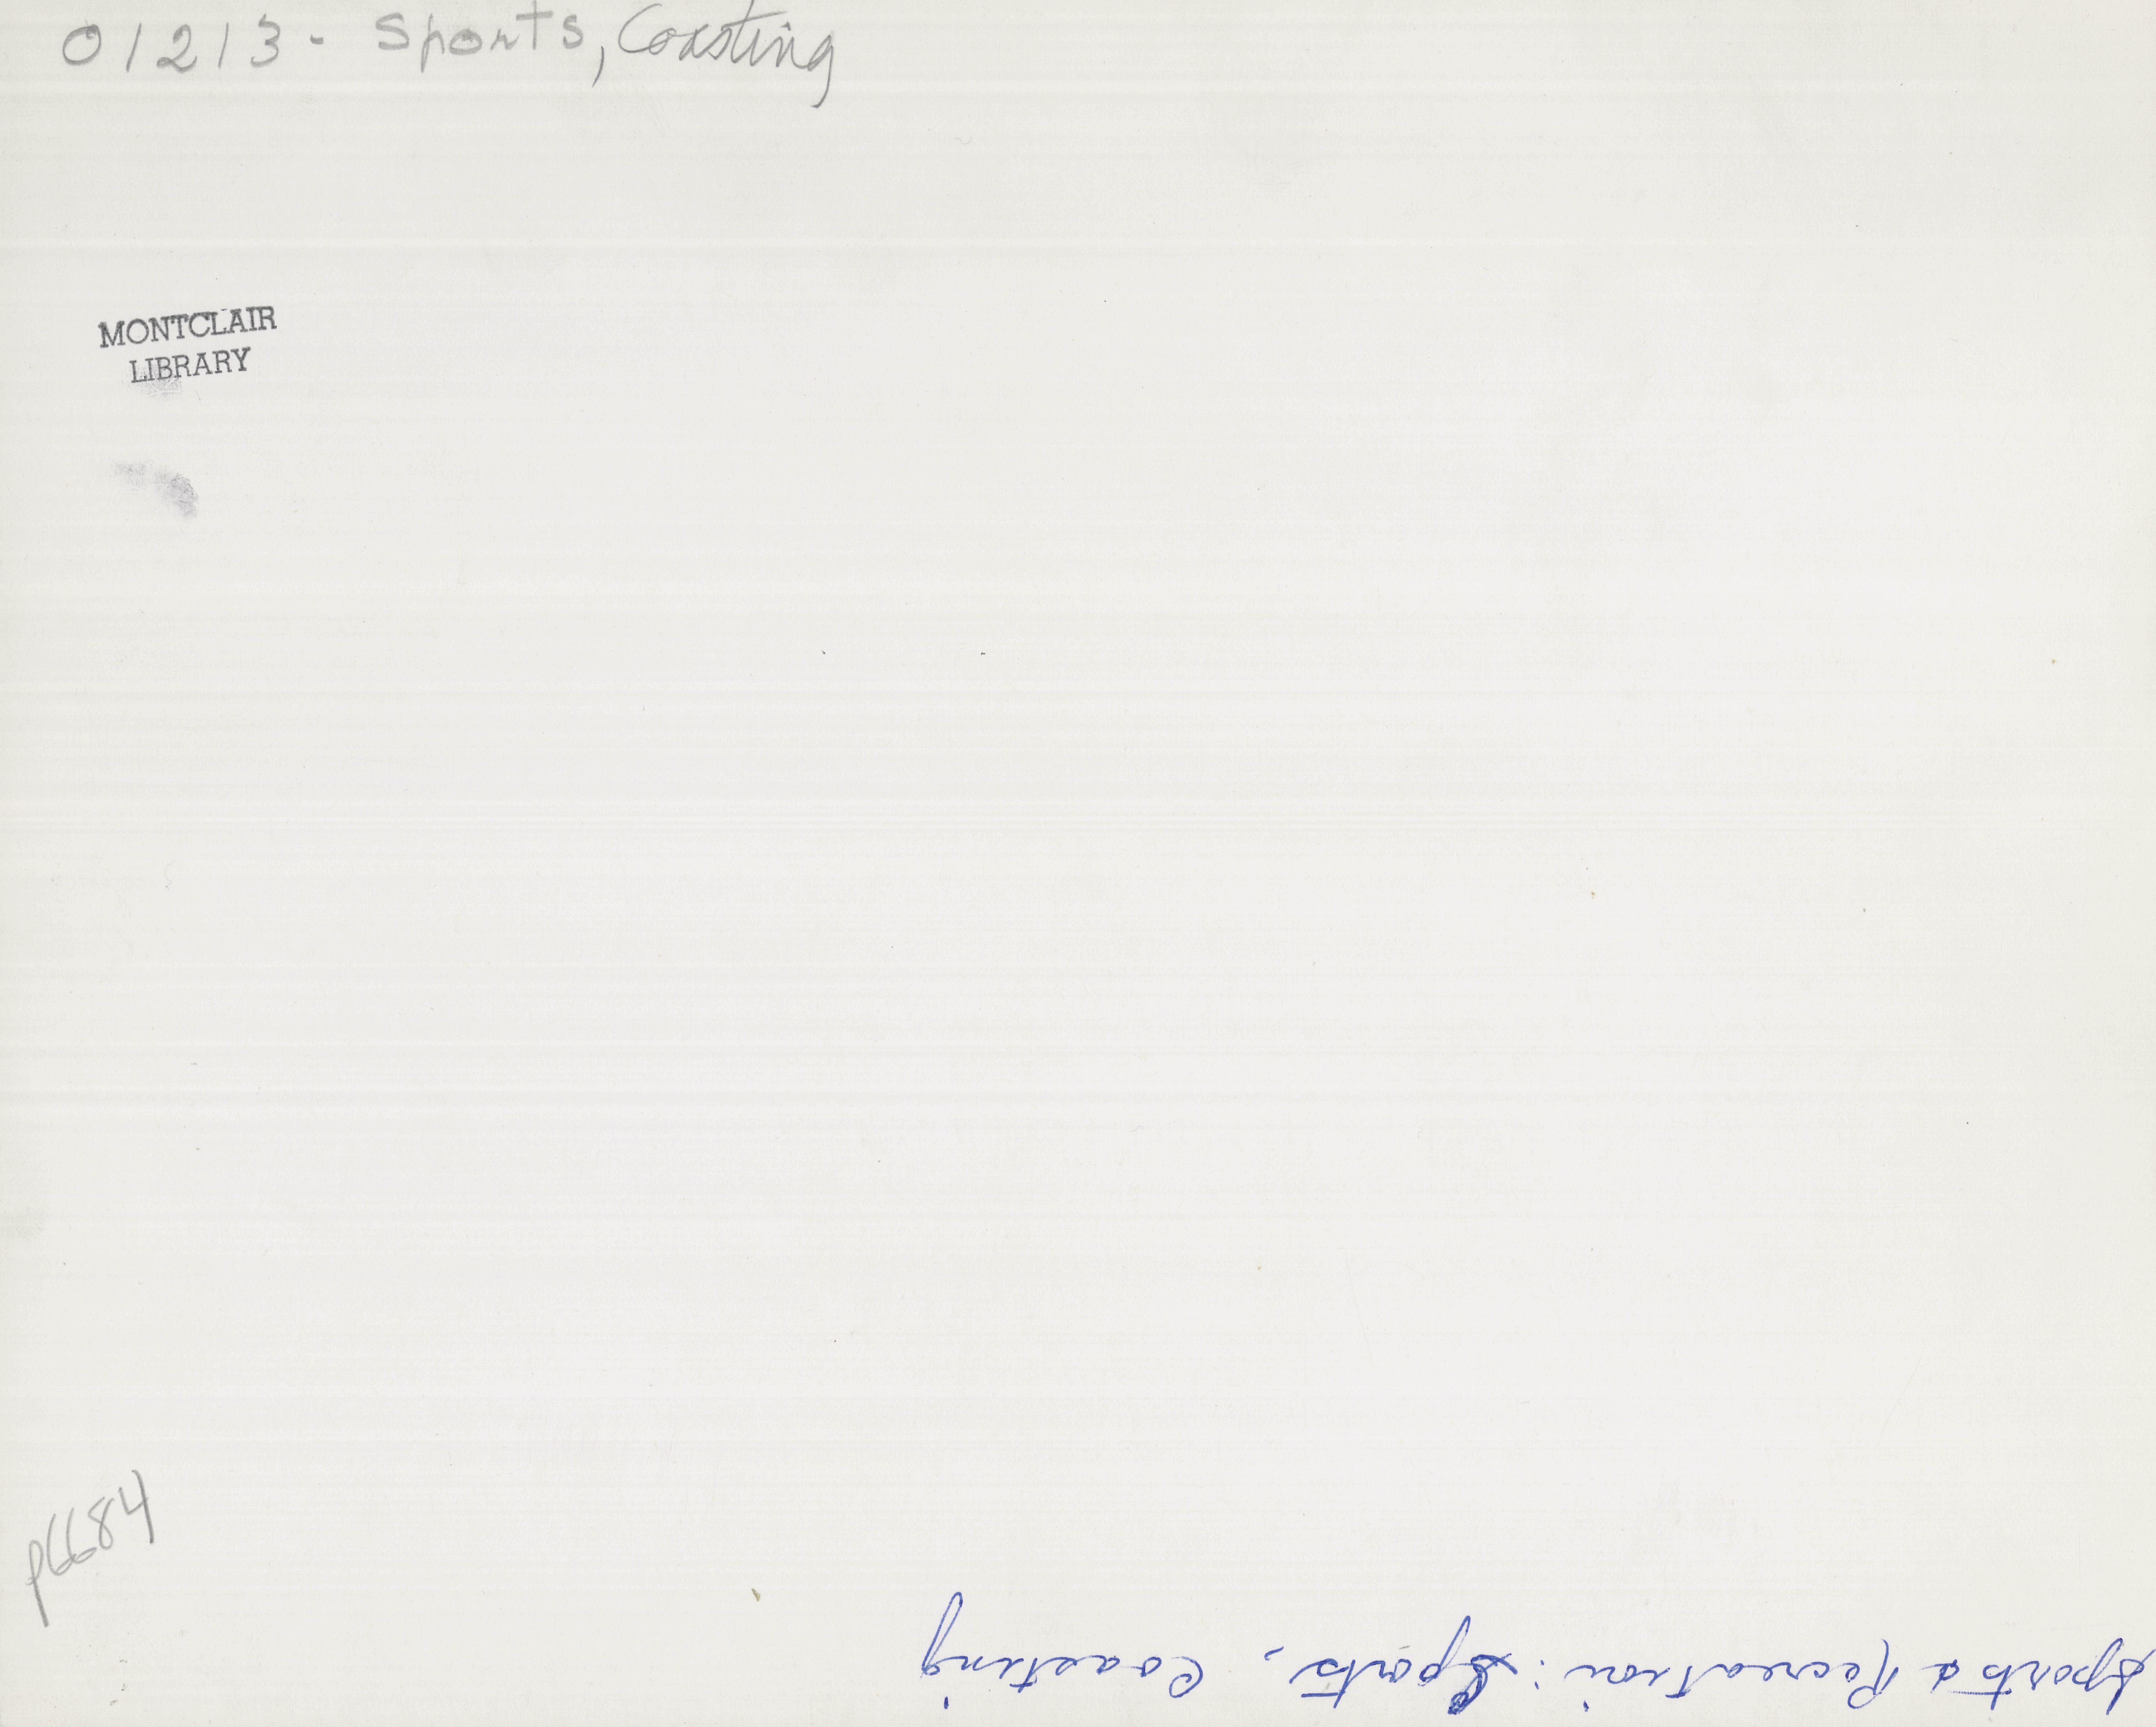 01213 - Sports, Coasting
MONTCLAIR
LIBRARY
p6684
Sports & Recreation: Sports, Coasting